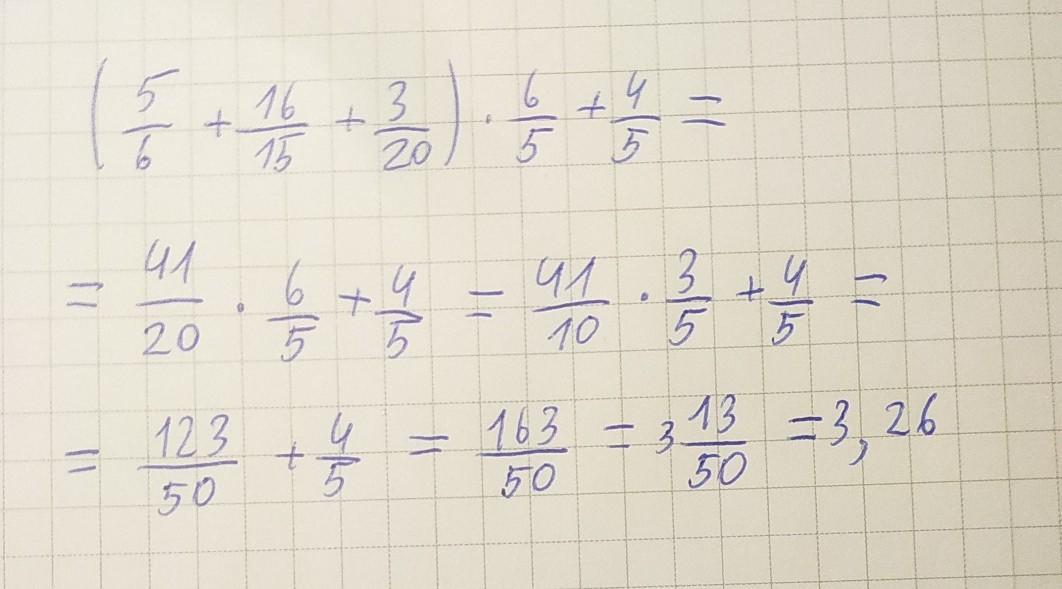 (5/6 + 16/15 + 3/20) · 6/5 + 4/5 =
= 41/20 · 6/5 + 4/5 = 41/10 · 3/5 + 4/5 =
= 123/50 + 4/5 = 163/50 = 3 13/50 = 3,26